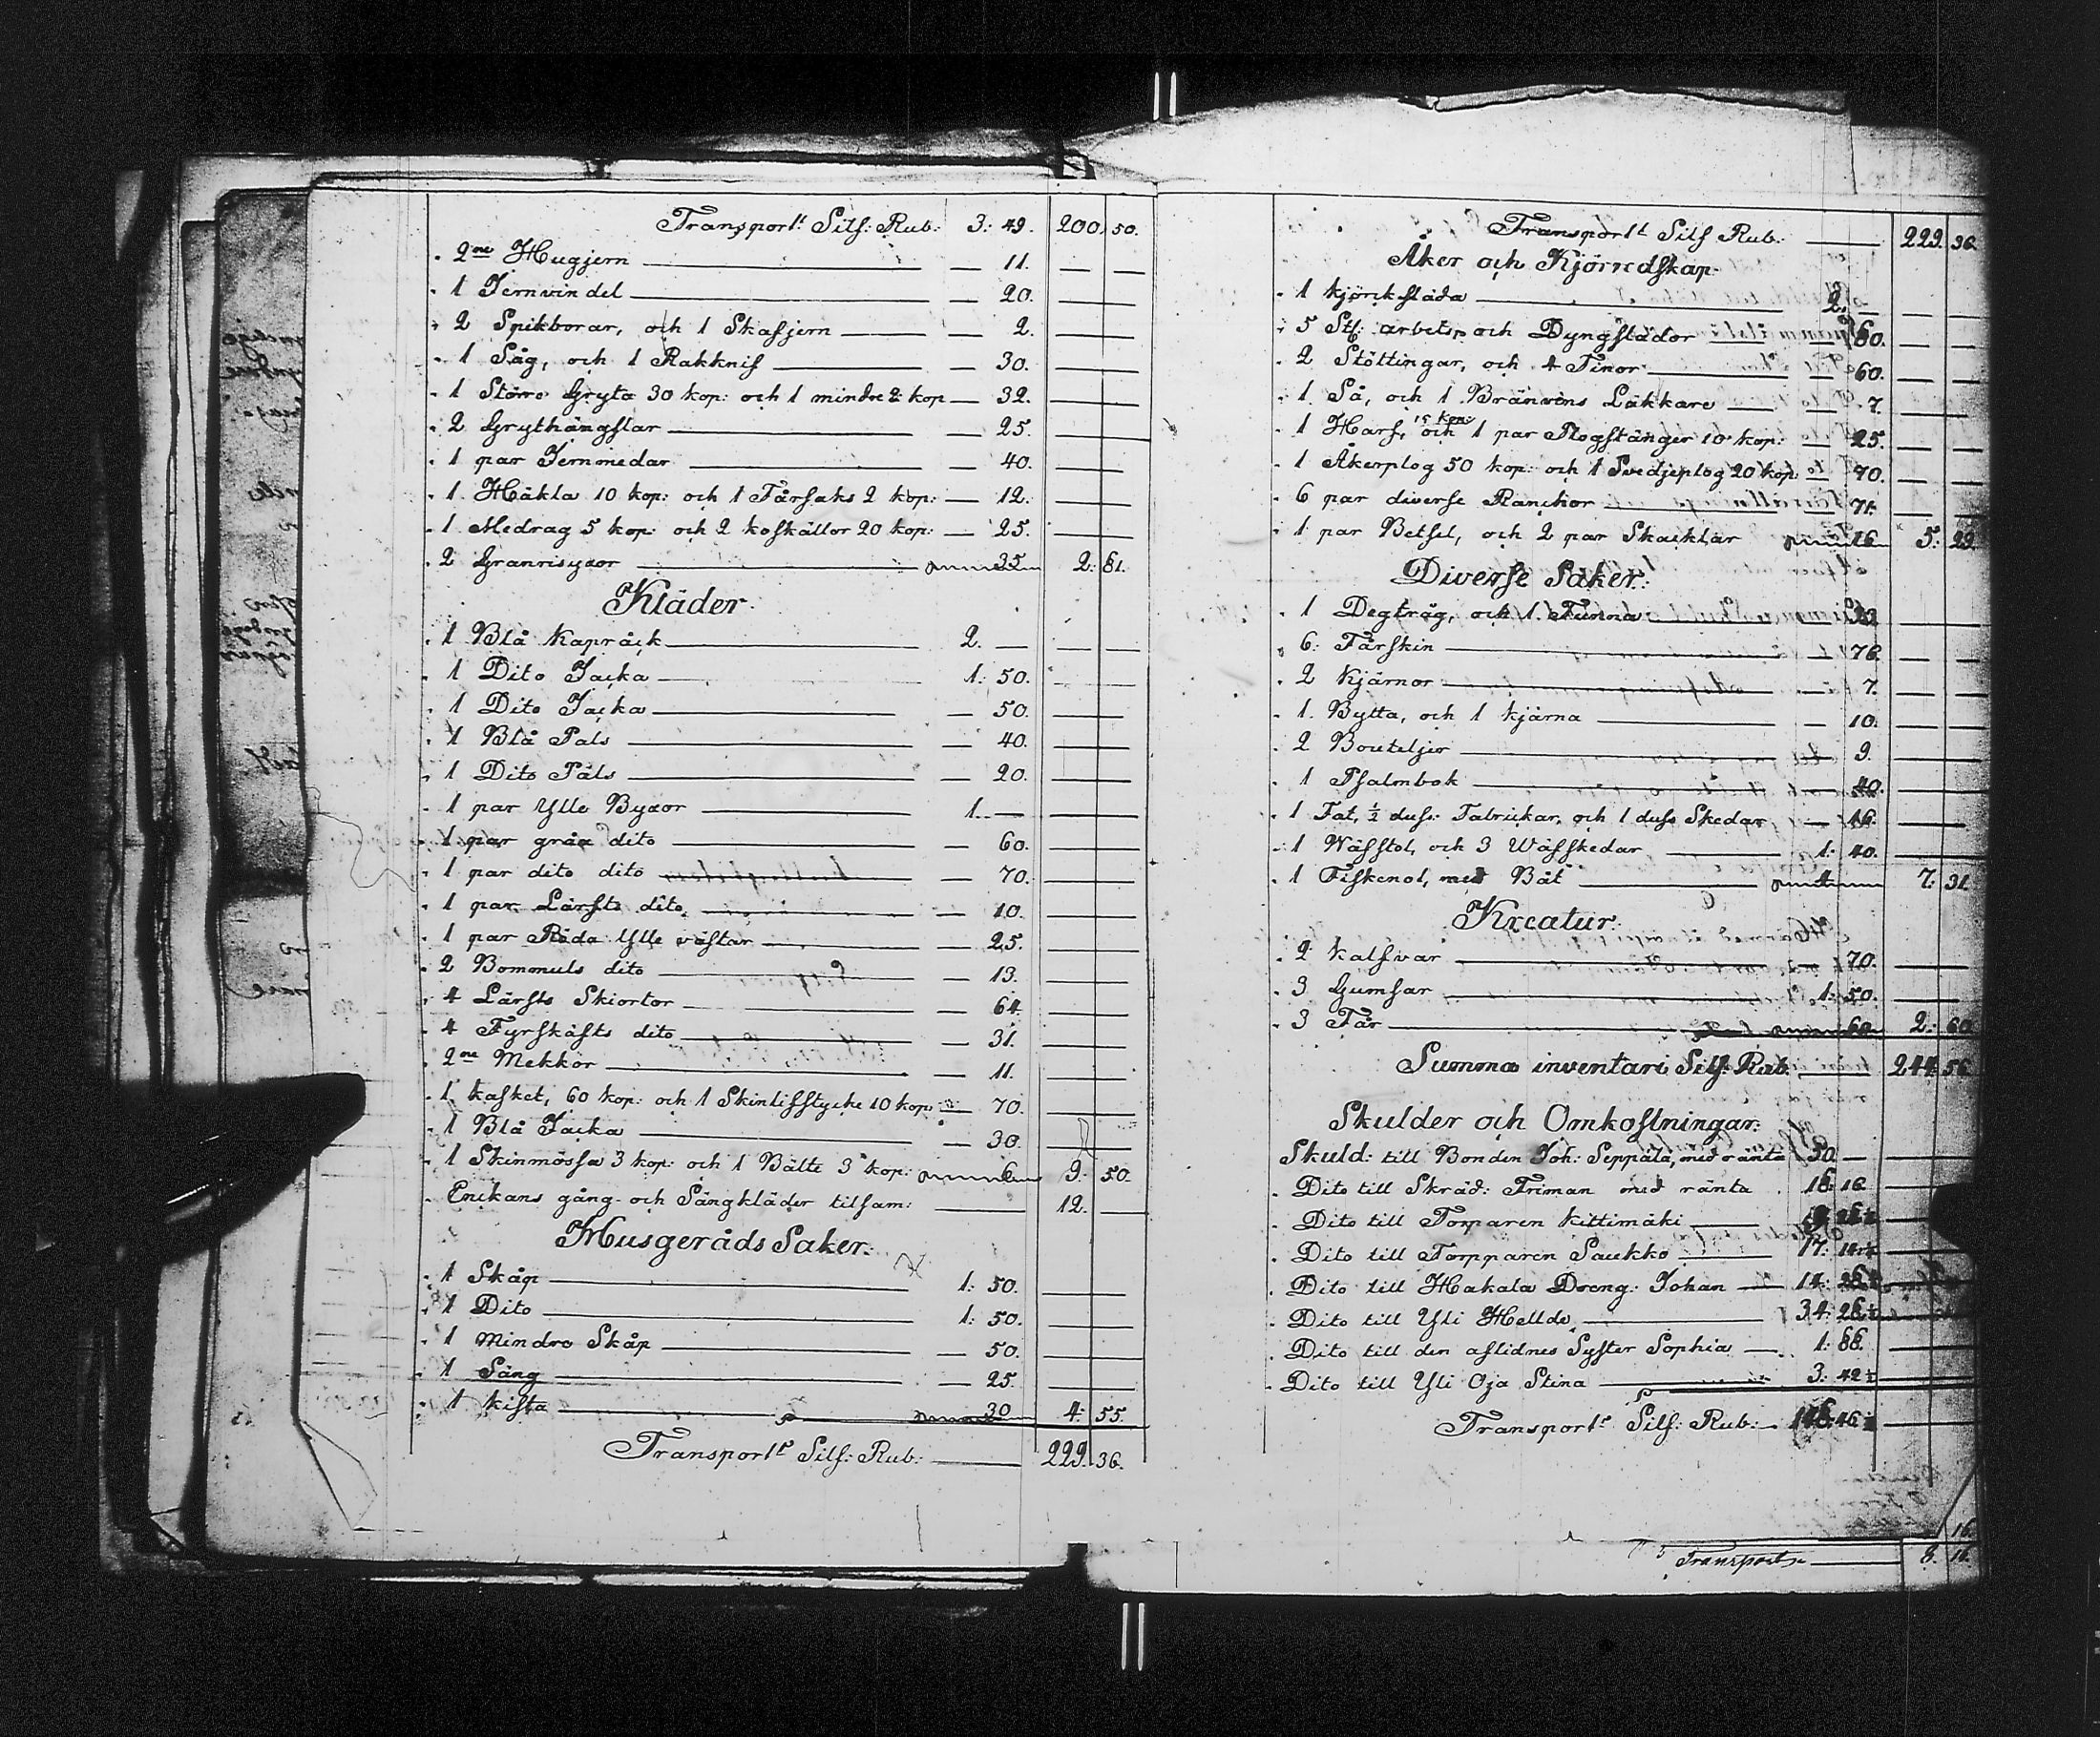 Transport: Silf: Rub: 3: 49. 200. 50.
2ne Hugjern — 11.
1 Jernvindel — 20.
2 Spikborar, och 1 Skafjern — 2.
1 Såg, och 1 Rakknif — 30.
1 Större Gryta 30 kop: och 1 mindre 2 kop — 32.
2 Grythängslar — 25.
1 par Jernmedar — 40.
1. Häkla 10 kop: och 1 Fårsaks 2 kop: — 12.
1 Medrag 5 kop: och 2 koskällor 20 kop: — 25.
2 Granrisyxor — 35 2: 81.
Kläder:
1 Blå Kapråck 2. —
1 Dito Jacka 1: 50.
1 Dito Jacka — 50.
1 Blå Pals — 40.
1 Dito Päls — 20.
1 par Ylle Byxor 1. —
1 par gråa dito — 60.
1 par dito dito — 70.
1 par Lärfts dito — 10.
1 par Röda Ylle västar — 25.
2 Bommuls dito — 13.
4 Lärfts Skiortor — 64.
4 Fyrskäfts dito — 31.
2ne Mekkor — 11.
1 kasket, 60 kop: och 1 Skinlifstycke 10 kop: — 70.
1 Blå Jacka — 30.
1 Skinmössa 3 kop: och 1 Bälte 3 kop: 6 9: 50.
Enckans gång- och Sängkläder tilsam: 12. —
Husgeråds Saker:
1 Skåp 1: 50.
1 Dito 1: 50.
1 mindre Skåp — 50.
1 Säng — 25.
1 kista 30 4: 55.
Transport: Silf: Rub: 229. 36.
Transport: Silf Rub: 229. 36.
Åker och Kjörredskap:
1 kjörkslåda 2. —
5 St: arbets och Dyngslädor 80.
2 Stöttingar, och 4 Tinor — 60.
1. Så, och 1 Bränvins Läkkare — 7.
1 Harf, 15 kop: och 1 par Plogstänger 10 kop: — 25.
1 Åkerplog 50 kop: och 1 Svedjeplog 20 kop: — 70.
6 par diverse Ranckor 71.
1 par Betsel, och 2 par Skacklar 16 5: 29.
Diverse Saker:
1 Degtråg, och 1 Tunna
6 Fårskin — 76.
2 kjärnor — 7.
1. Bytta, och 1 kjärna — 10.
2 Bouteljer 9.
1 Psalmbok — 40.
1 Fat, ½ duss: Talrickar, och 1 duss Skedar — 16.
1 Wäfstol, och 3 Wäfskedar 1: 40.
1 Fiskenot, med Båt 4 7: 31.
Kreatur:
2 kalfvar — 70.
3 Gumsar 1: 50.
3 Får 60 2: 60
Summa inventari Silf: Rub: 244: 56
Skulder och Omkostningar:
Skuld: till Bonden Joh: Seppälä, med ränta 30 —
Dito till Skräd: Friman med ränta 18: 16
Dito till Torparen Kittimäki
Dito till Torpparen Saukko 17: 14½
Dito till Hakala Dreng: Johan 14:
Dito till Yli Hellde 34: 26½
Dito till den aflidnes Syster Sophia 1: 88.
Dito till Yli Oja Stina 3: 42½
Transport: Silf: Rub:
16
Transport 8. 16